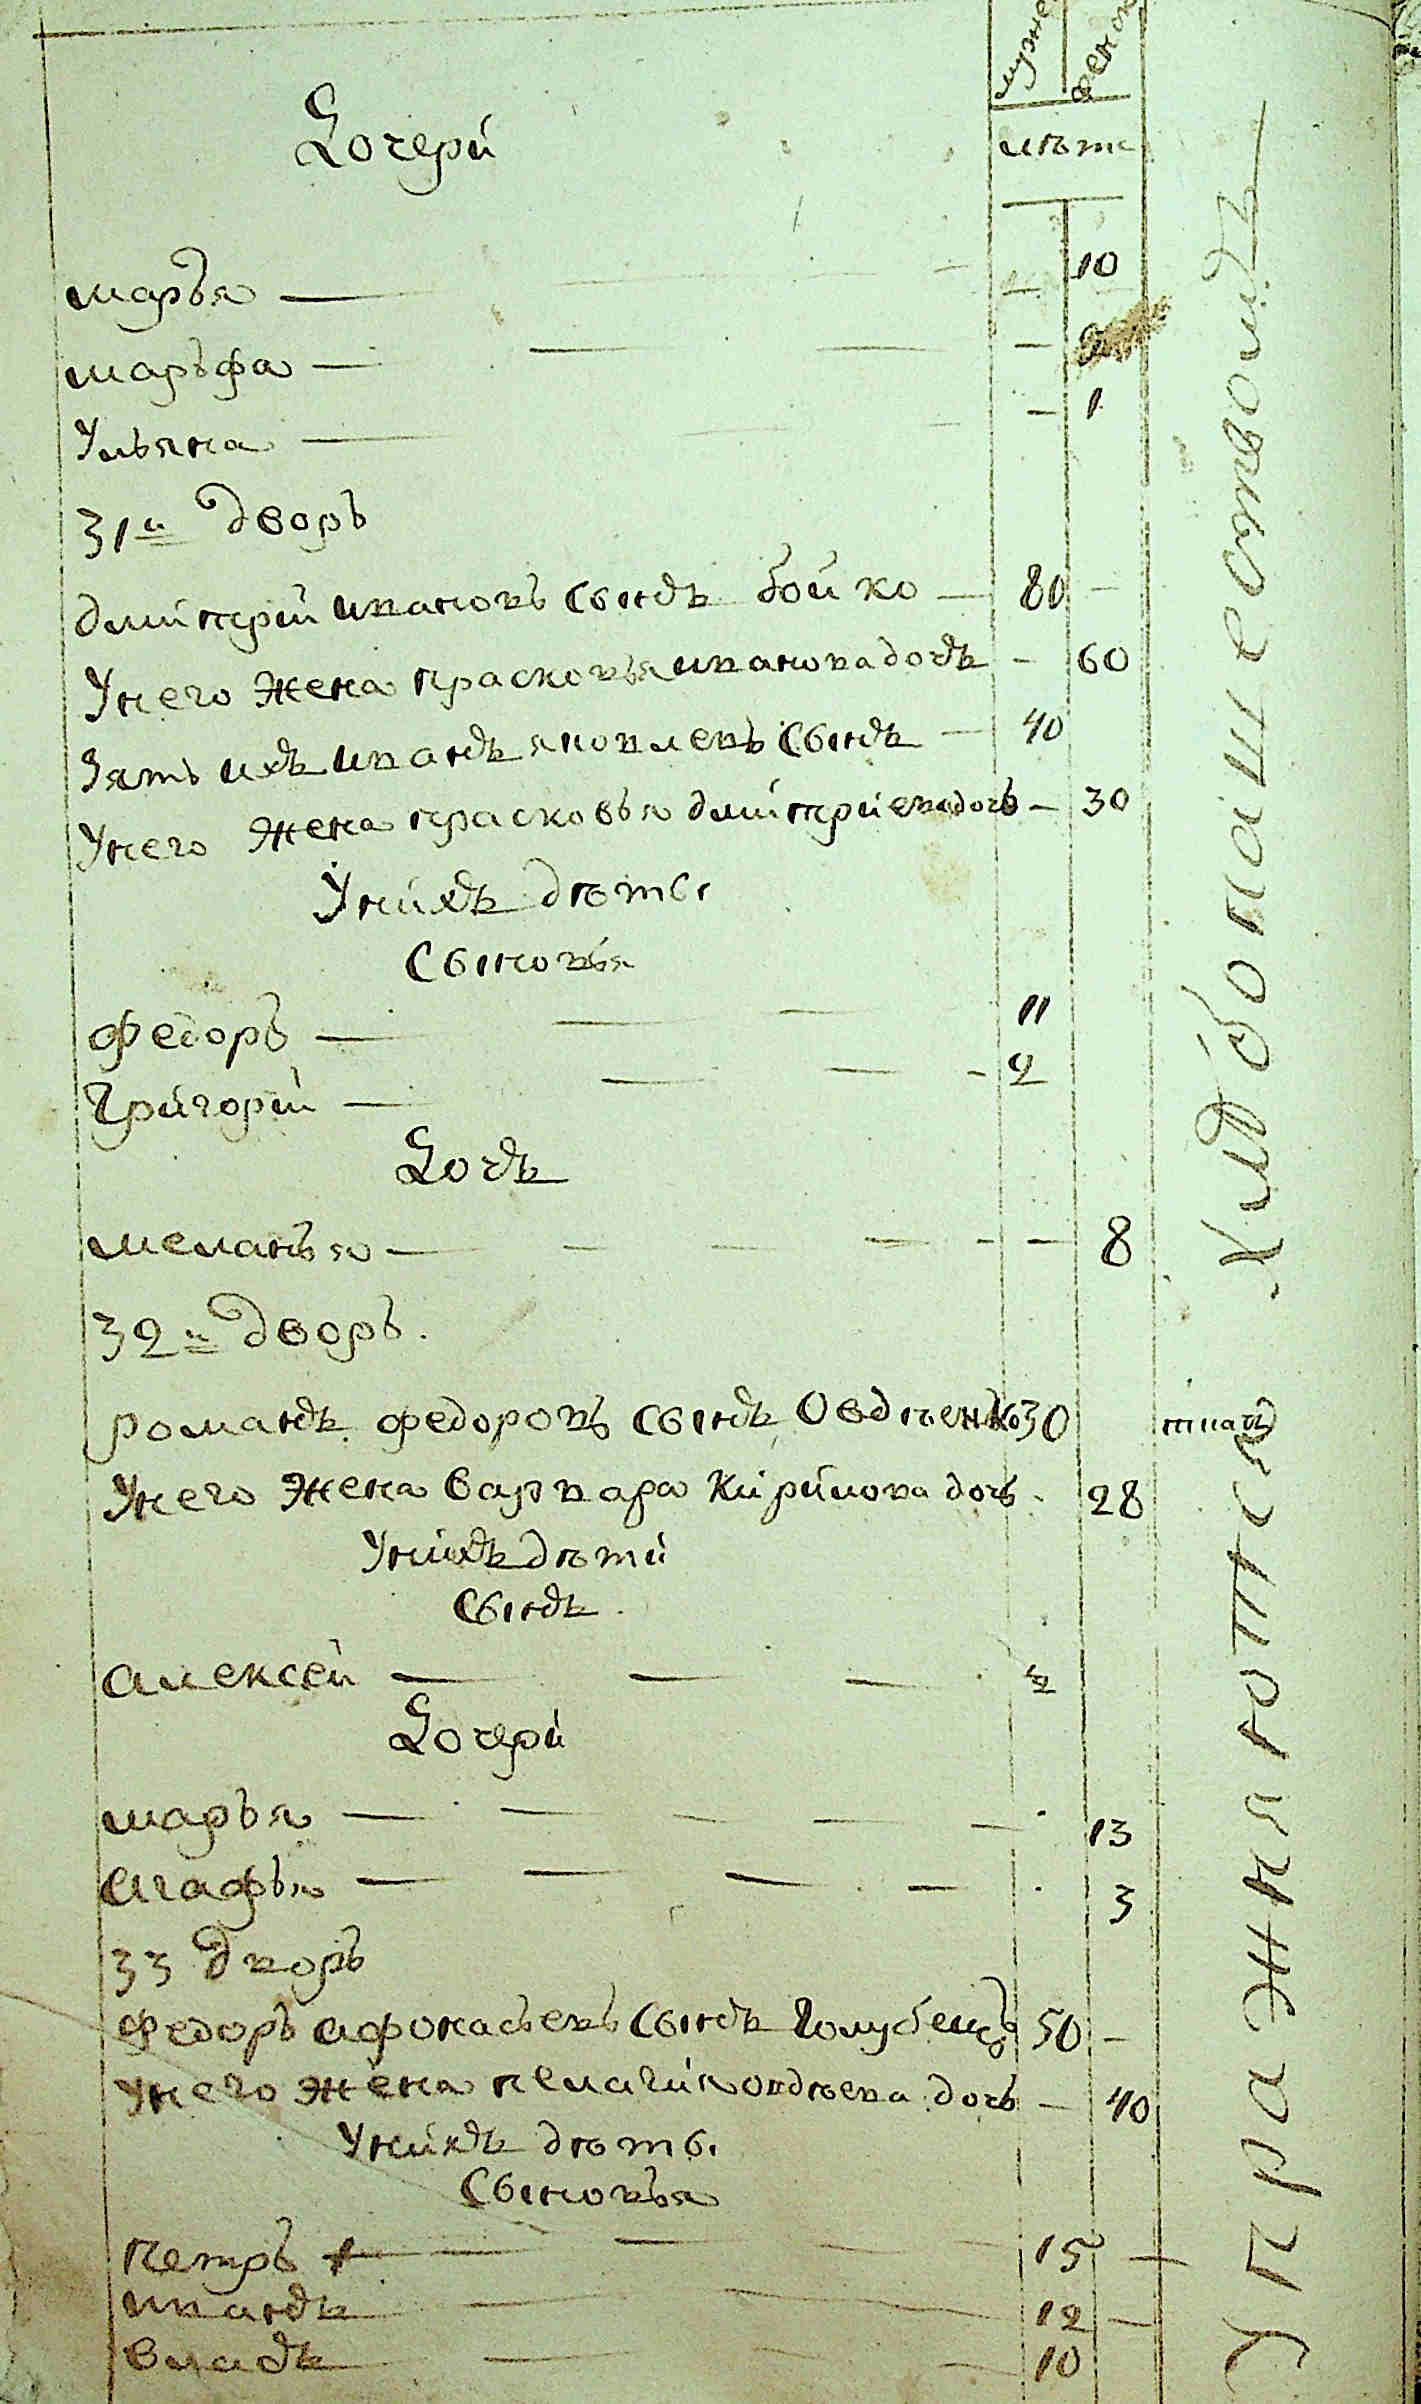 муже женск
лѣтъ
Дочери
марья — 10
маръфа —
Ульяна — 1
31й дворъ
дмитрий ивановъ сынъ бойко — 80 —
Унего жена прасковья иванова дочь — 60
Зять ихъ иванъ яковлевъ сынъ — 40
Унего жена прасковья дмитриева дочь — 30
Унихъ дѣты
Сыновья
Федоръ — 11
Григорий — 2
Дочь
меланья — 8
32й дворъ.
романъ федоровъ сынъ Овдѣенко 30
Унего жена варвара Кирилова дочь 28
Унихъ дѣти
Сынъ
алексей —
Дочери
марья — 13
агафья — 3
33 дворъ
Федоръ афонасьевъ сынъ Голубецъ 50 —
Унего жена пелагия овдѣева дочь — 40
Унихъ дѣты
Сыновья
Петръ — 15 —
иванъ 12 —
владъ 10
Упражняются Хлѣбопашествомъ